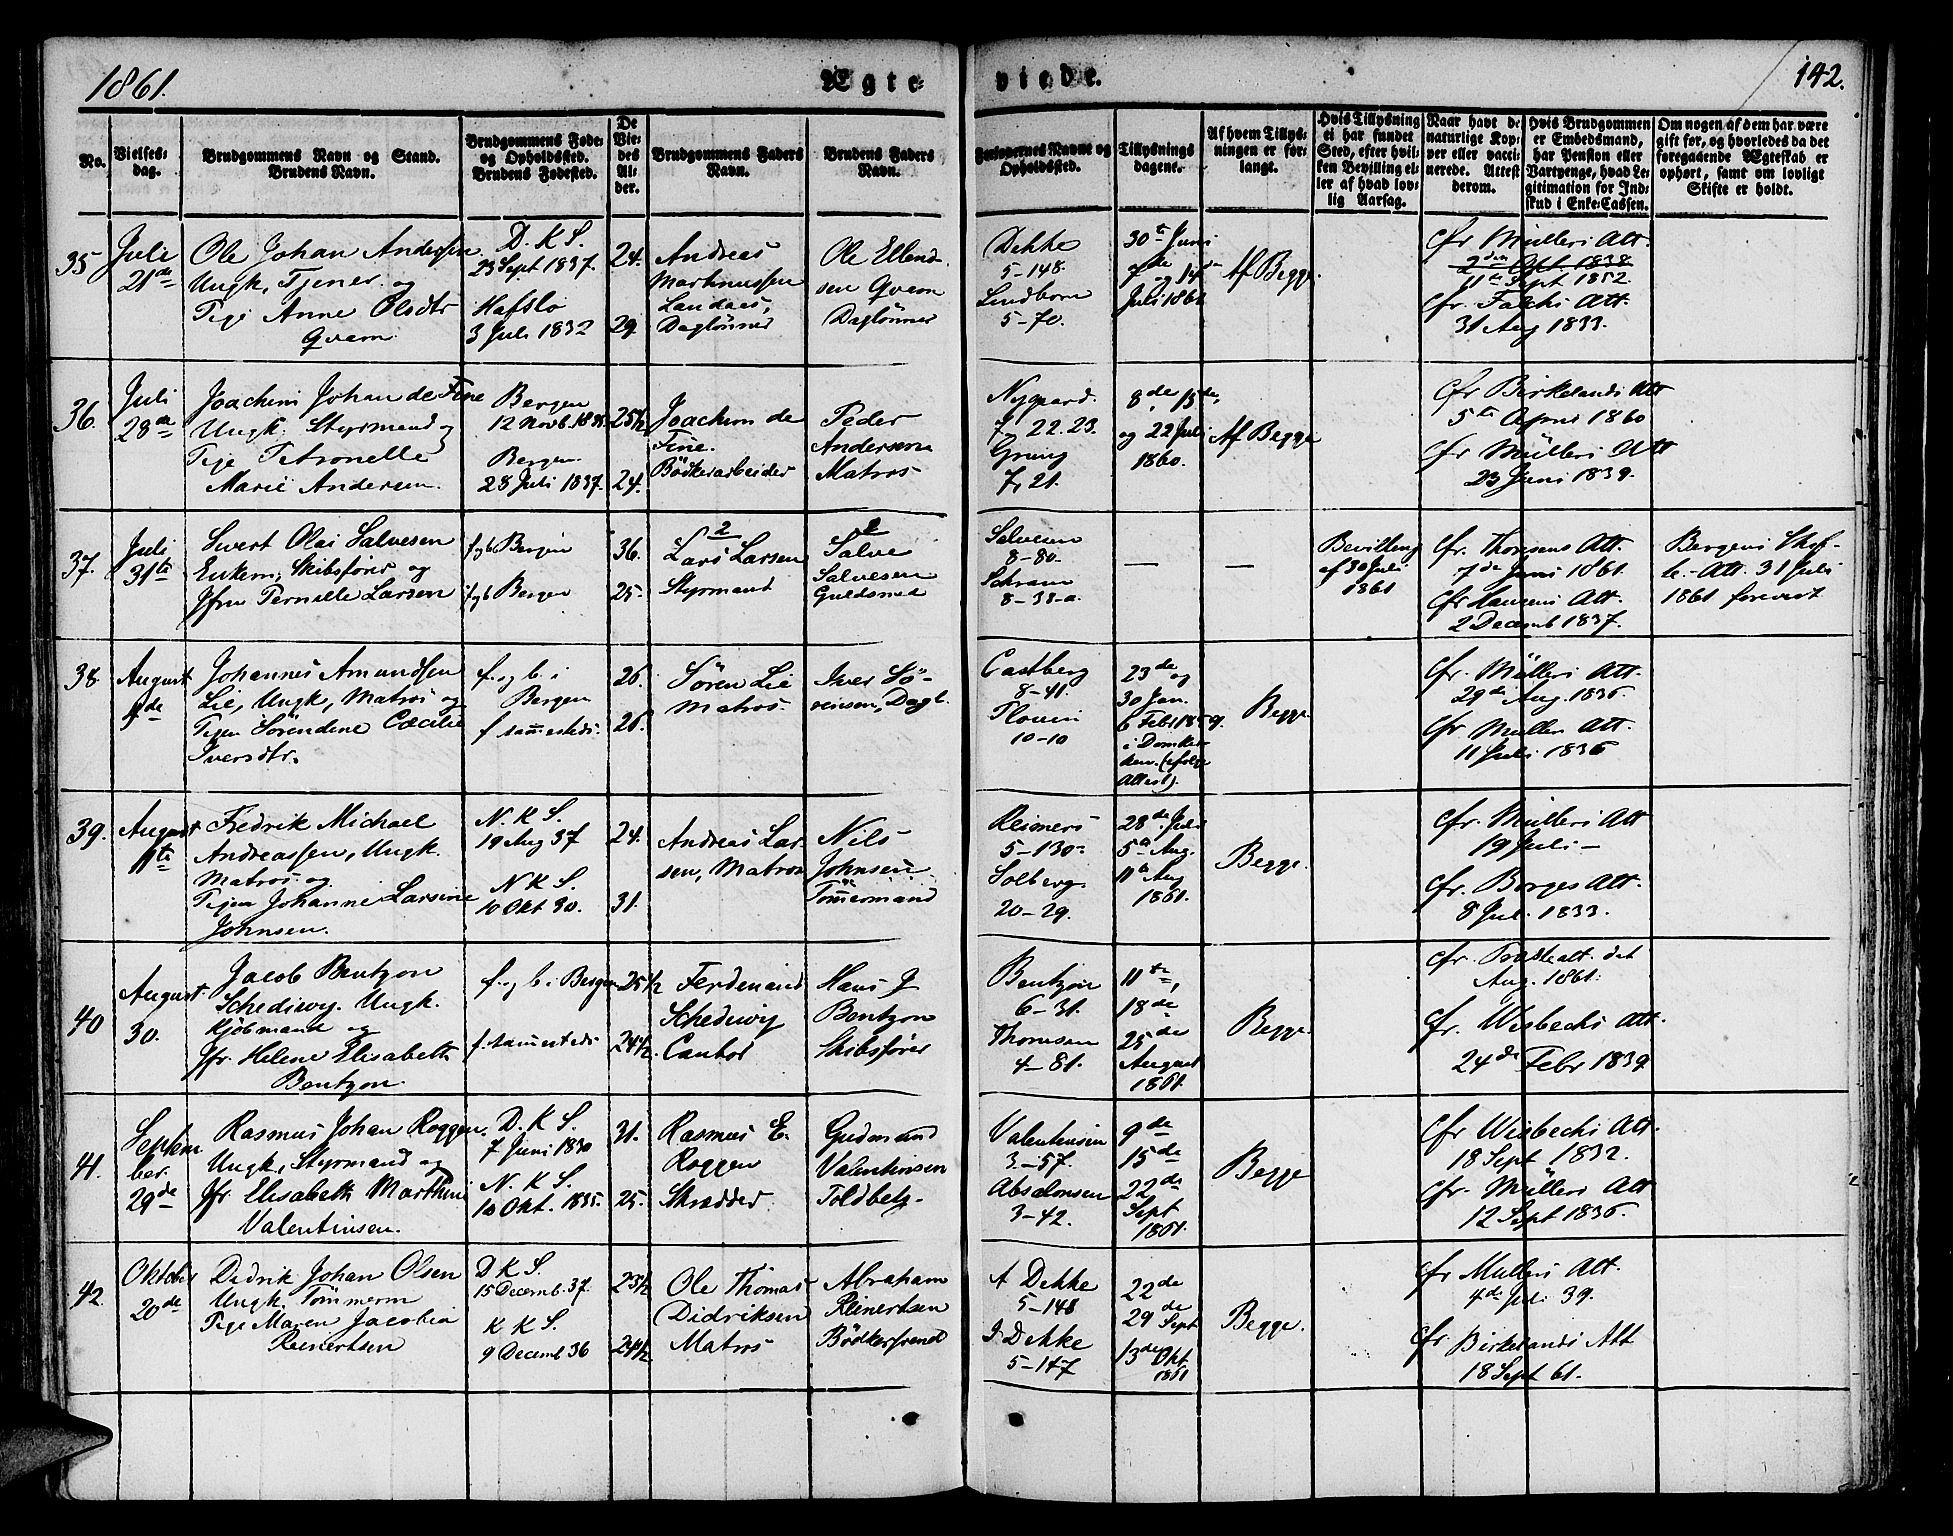 1861.
Ægte viede.
142.
No.
Vielses-
dag.
Brudgommens Navn og Stand.
Brudens Navn.
Brudgommens Føde-
og Opholdssted.
Brudens Fødested.
De
Vie-
des
Al-
der.
Brudgommens Faders
Navn.
Brudens Faders
Navn.
Forlovernes Navne og
Opholdssted.
Tillysnings
dagene.
Af hvem Tillys-
ningen er for-
langt.
Hvis Tillysning
ei har fundet
Sted, efter hvil-
ken Bevilling el-
ler af hvad lov-
lig Aarsag.
Naar havt de
naturlige Kop-
per eller vacci-
nerede. Attest
derom.
Hvis Brudgommen
er Embedsmand,
har Pension eller
Vartpenge, hvad Le-
gitimation for Ind-
skud i Enke-Cassen.
Om nogen af dem har være
gift før, og hvorledes da det
foregaaende Ægteskab er
ophørt, samt om lovligt
Skifte er holdt.
35
Juli
21de
Ole Johan Andersen
Ungk, Tjener og
Pige Anne Olsdtr
Qvam
D. K S.
23 Sept 1837.
Hafslo
3 Juli 1832
24.
29.
Andreas
Martinussen
Landaas,
Daglönner
Ole Ellend-
sen Qvam
Daglönner
Dekke
5-148.
Lindborn
5-70.
30te Juni
7de og 14de
Juli 1861
Af Begge.
cfr Mülleri Att.
2den Oct 1838
11te Sept 1852.
cfr. Falchs Att.
31 Aug 1833.
36.
Juli
28de
Joachim Johan de Fine
Ungk. Styrmand og
Pige Petronelle
Marie Andersen.
Bergen
12 Novb. 1835
Bergen
28 Juli 1837.
25½
24.
Joachim de
Fine.
Bödkerarbeider
Peder
Andersen
Matros
Nygaard.
7, 22.23.
Grung
7, 21.
8de, 15de,
og 22 Juli
1860.
Af Begge
cfr Birkelands Att
5te April 1860
cfr Mülleri Att
23 Juni 1839.
37.
Juli
31te
Sivert Olai Salvesen
Enkem, Skibsförer og
Jfru Pernille Larsen
f. og b Bergen
f. og b Bergen
36.
25.
2
Lars Larsen
Styrmand
1
Salve
Salvesen
Guldsmed
Salvesen
8-80.
Schram
8-38-a.
—
—
Bevilling
af 30 Juli
1861
cfr. Thomsens Att.
7de Juni 1861.
cfr Hansens Att.
2 Decemb 1837.
Bergens Skif-
te. Att. 31 Juli
1861 forevist
38
August
4de
Johannes Amundsen
Lie, Ungk, Matros og
Pigen Sörendine Cæcilie
Iversdtr.
f. og b. i
Bergen
f sammesteds.
26.
26.
Sören Lie
Matros.
Iver Sö-
rensen, Dagl.
Castberg
8-41.
10-10
23de og
30 Jan.
6 Febr 1859.
i Domkir-
ken. (ifölge
Attest).
Begge.
cfr. Mülleri Att.
29de Aug. 1836.
cfr Mülleri Att.
11 Juli 1836
39.
August
11te
Fredrik Michael
Andreassen, Ungk.
Matros og
Pigen Johanne Larsine
Johnsen.
N. K S.
19 Aug 37
N K S.
10 Okt 30.
24.
31.
Andreas Lar-
sen, Matros
Nils
Johnsen
Tömmermand
Reimers
5-130-
Solberg
20-29.
28de Juli
5te Aug.
11te Aug
1861.
Begge.
cfr. Mülleri Att
19 Juli —
cfr. Borges Att.
8 Jul. 1833.
40
August
30.
Jacob Bentzon
Schediwy. Ungk.
Kjöbmand og
Jfr. Helene Elisabeth
Bentzon.
f. og b. i Bergen
f. sammesteds
25½
24½.
Ferdinand
Schediwy
Cantor
Hans J
Bentzon
Skibsförer
Bentzon
6-31.
Thomsen
4-81.
11te,
18de
25de
August
1861.
Begge.
Aug. 1861.
cfr. Wisbechs Att.
24de Febr 1839
41.
Septem
ber.
29de
Rasmus Johan Roggen.
Ungk, Styrmand og
Jfr Elisabeth Marthine
Valentinsen.
D. K S.
7 Juni 1830
N. K S.
10 Okt. 1835.
31.
25.
Rasmus E.
Roggen
Skrædder
Gudmand
Valentinsen
Toldbetj.
Valentinsen
3-57.
Absalonsen
3-42.
9de
15de
22de
Sept
1861.
Begge
cfr Wisbechs Att.
18 Sept 1832.
cfr. Mülleri Att
12 Sept 1836.
42.
Oktober
20de
Didrik Johan Olsen
Ungk. Tömmerm
Pige Maren Jacobia
Reinertsen
D K S.
15 Decemb. 37.
K K S.
9 Decemb 36
23½
24½
Ole Thomas
Didriksen
Matros
Abraham
Reinertsen
Bödkersvend
A Dekke
5-148
J. Dekke
5-147
22de
29de Sept
13de Okt
1861
Begge.
cfr Mülleri Att.
4de Juli 39.
cfr Birkelands Att
18 Sept 61.